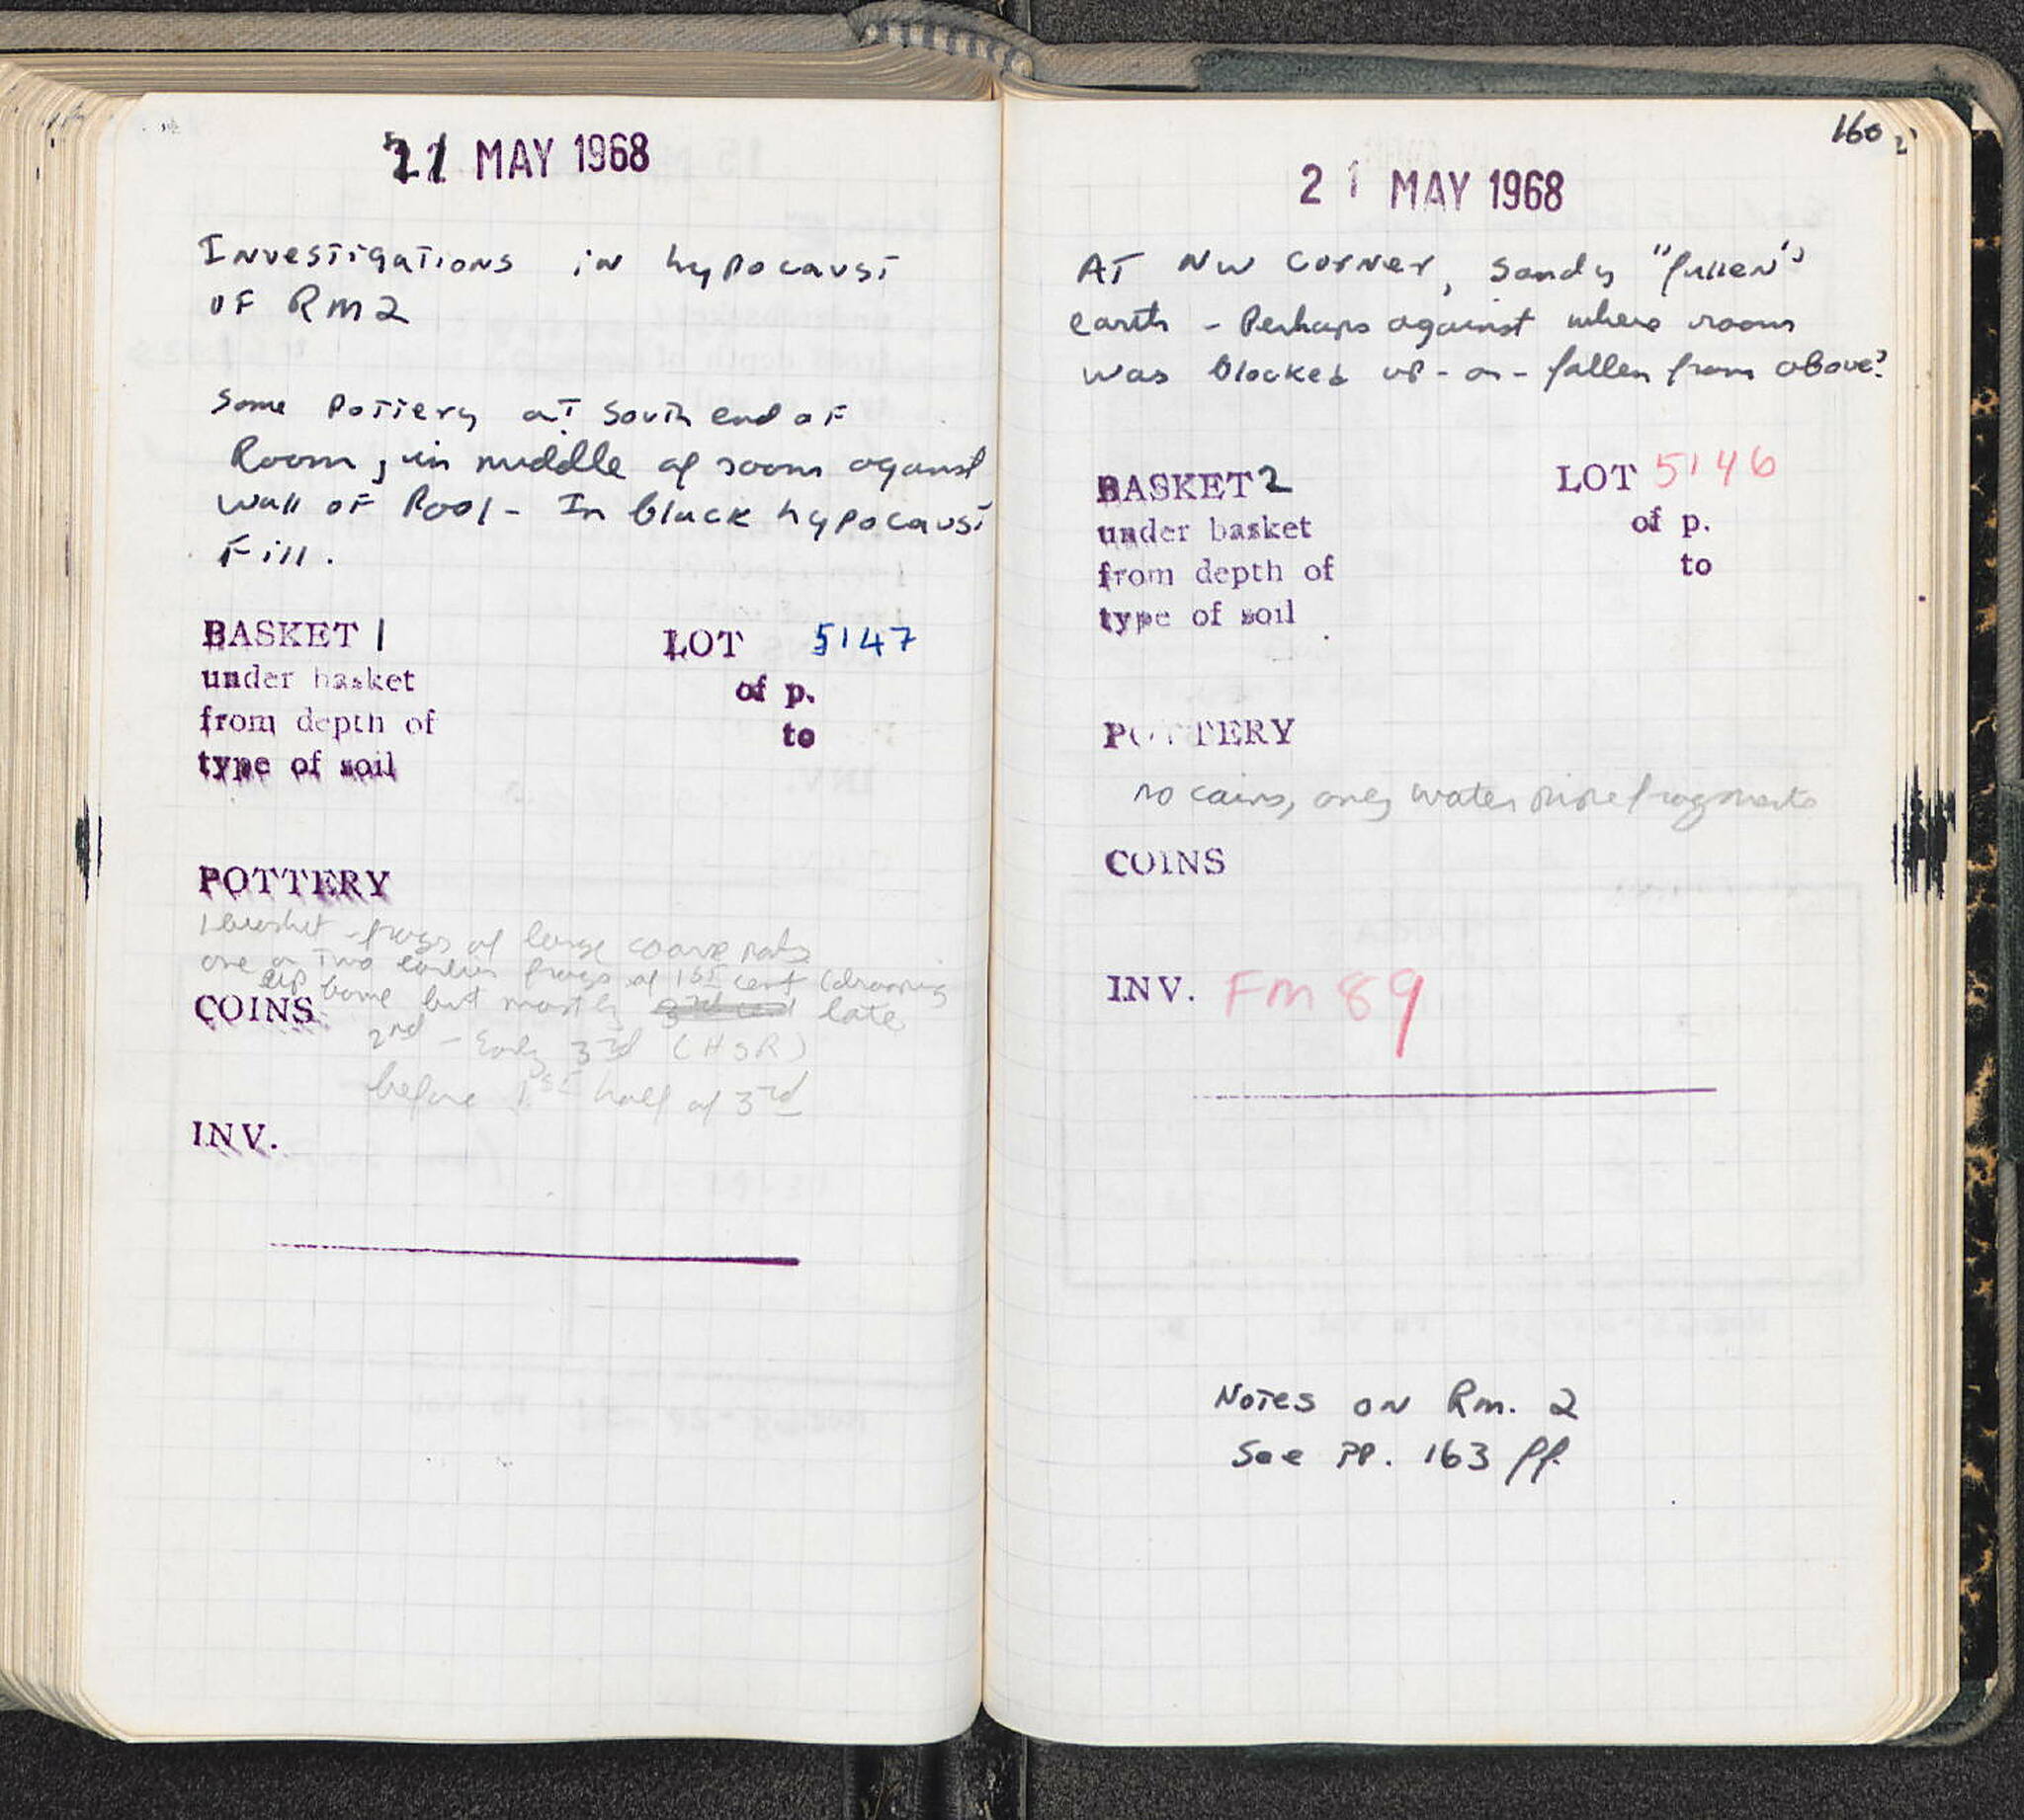 21 MAY 1968
Investigations in hypocaust
of Rm 2
Some Pottery at South end of
Room, in middle of room against
wall of Pool - In black hypocaust
Fill.
BASKET 1 LOT 5147
under basket of p.
from depth of to
type of soil
POTTERY
1 basket - frags of large coarse pots
one or two earlier frags of 1st cent (drooping
lip bowl but mostly 3rd cent late
COINS
2nd - Early 3rd (HSR)
before 1st half of 3rd
INV.
160
21 MAY 1968
At NW corner, sandy "fallen"
earth - Perhaps against where room
was blocked up - or - fallen from above?
BASKET 2 LOT 5146
under basket of p.
from depth of to
type of soil
POTTERY
no coins, only water pipe fragments
COINS
INV. FM 89
Notes on Rm. 2
See PP. 163 ff.